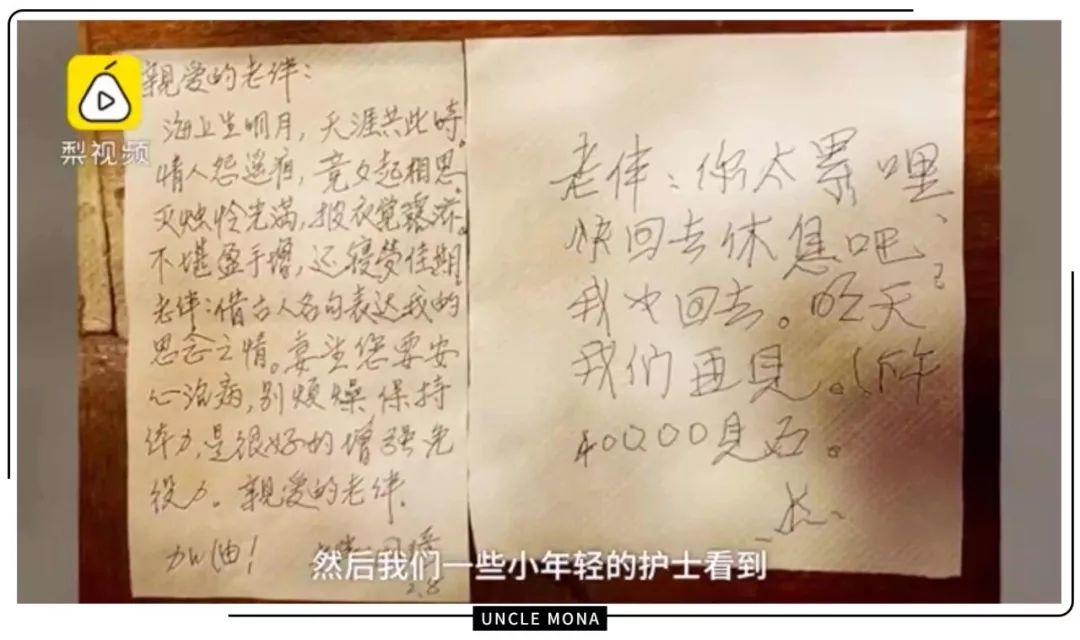 梨视频
親爱的老伴：
海上生明月，天涯共此時。
情人怨遥夜，竟夕起相思。
灭烛怜光满，披衣觉露滋。
不堪盈手增，还寝梦佳期。
老伴：借古人名句表达我的
思念之情。妻望您要安
心治病，别烦燥，保持
体力，是很好的增强免
役力。親爱的老伴，
加油！
2.8
老伴：你太累哩、
快回去休息吧、
我也回去。明天
我们再見。（下午
40000見
然后我们一些小年轻的护士看到
UNCLE MONA